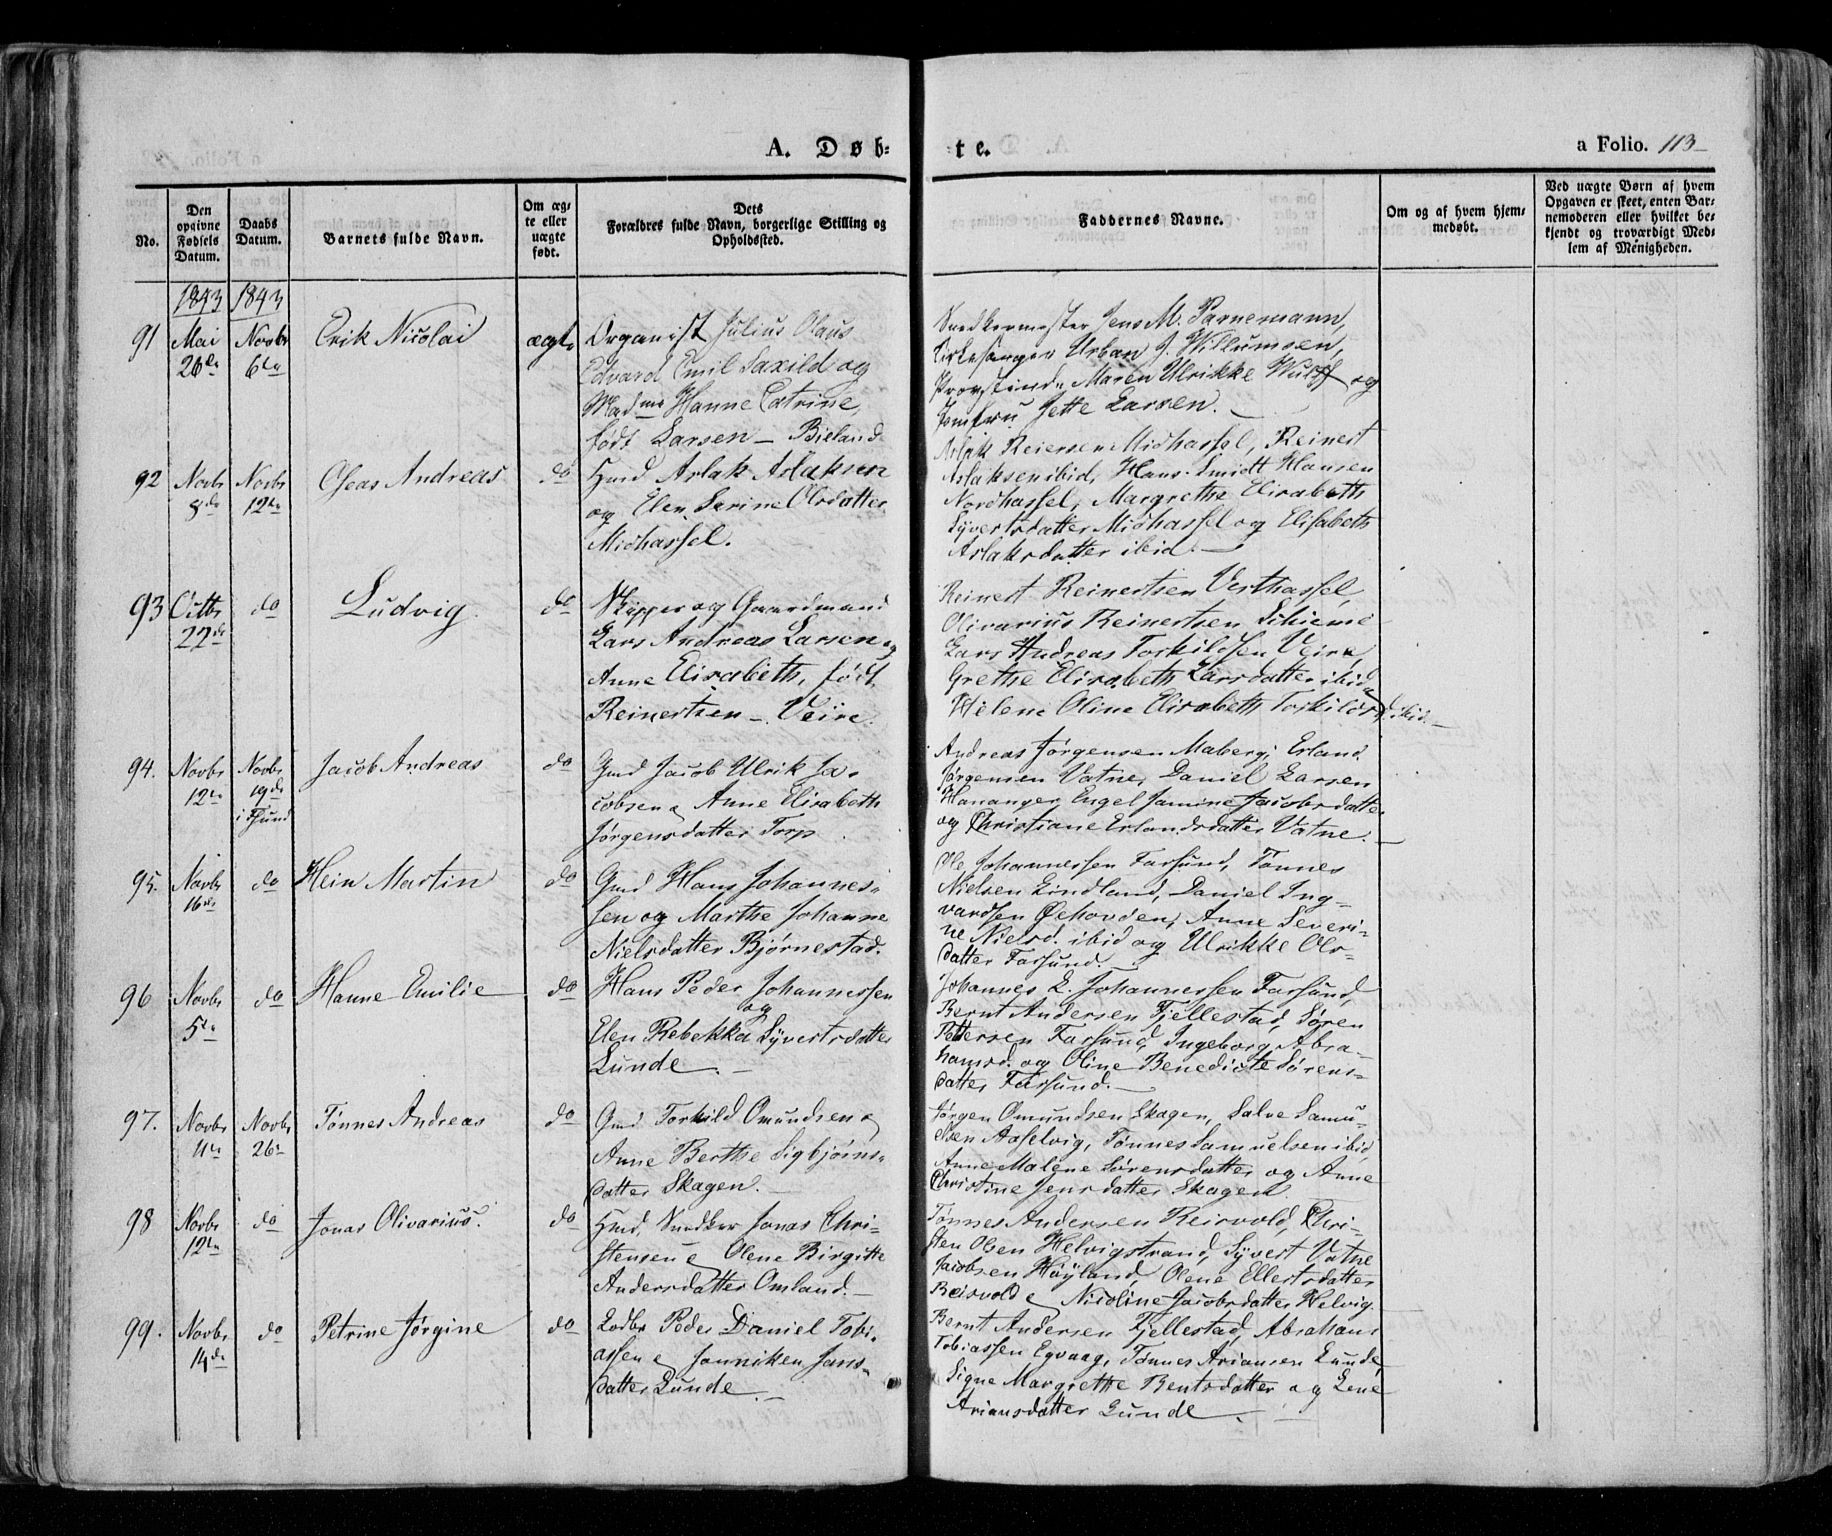 A. Døb=
te.
a Folio. 113
No.
Den opgivne Fødsels Datum.
Daabs Datum.
Barnets fulde Navn.
Om ægte eller uægte født.
Dets Forældres fulde Navn, borgerlige Stilling og Opholdssted.
Faddernes Navne.
Om og af hvem hjemmedøbt.
Ved uægte Børn af hvem Opgaven er skeet, enten Barnemoderen eller hvilket bekjendt og troværdigt Medlem af Menigheden.
1843 1843
91 Mai 26de Novbr 6te Erik Nicolai ægte
Organist Julius Olaus
Edvard Emil Saxild og
Madme Hanne Catrine,
født Larsen – Bieland
Snedkermester Jens M. Parnemann,
Kirkesanger Urban J. Willumsen,
Provstinde Maren Ulrikke Wulff og
Jomfru Jette Larsen.
92 Novbr 8de Novbr 12te Oseas Andreas do
Huusmd Aslak Aslaksen
og Elen Serine Olsdatter
Midhassel.
Aslak Reiersen Midhassel, Reinert
Aslaksen ibid, Hans Smidt Hansen
Nordhassel, Margrethe Elisabeth
Syvertsdatter Midhassel og Elisabeth
Aslaksdatter ibid.
93 Octbr 22de do Ludvig do
Skipper og Gaardmand
Lars Andreas Larsen og
Anne Elisabeth, født
Reinertsen – Veire.
Reinert Reinertsen Vesthassel,
Olivarius Reinertsen
Lars Andreas Torkildsen Veire,
Grethe Elisabeth Larsdatter ibid
Helene Oline Elisabeth Torkildsd. ibid. –
94. Novbr 12te Novbr 19de i Fsund Jacob Andreas do
Gmd Jacob Ulrik Ja-
cobsen & Anne Elisabeth
Jørgensdatter Torp.
Andreas Jørgensen Maberg, Erland
Jørgensen Vatne, Daniel Larsen
Hananger, Engel Jamine Jacobsdatter
og Christiane Erlandsdatter Vatne.
95. Novbr 16de do Hein Martin do
Gmd Hans Johannes-
sen og Marthe Johanne
Nielsdatter Bjørnestad.
Ole Johannessen Farsund, Tønnes
Nielsen Lindland, Daniel Ing-
vardsen Øehovden, Anne Severi-
ne Nielsd. ibid og Ulrikke Ols-
datter Farsund.
96 Novbr 5te do Hanne Emilie do
Hans Peder Johannessen
og
Elen Rebekka Syvertsdatter
Lunde. –
Johannes L. Johannessen Farsund,
Bernt Andersen Fjellestad, Søren
Pettersen Farsund, Ingeborg Abra-
hamsd. og Oline Benedicte Sørens-
datter Farsund. –
97. Novbr 11te Novbr 26de Tønnes Andreas do
Gmd Torkild Omundsen &
Anne Berthe Sigbjørns-
datter Skagen. –
Jørgen Omundsen Skagen, Salve Samu-
elsen Aaselvig, Tønnes Samuelsen ibid,
Anne Malene Sørensdatter og Anne
Christine Jensdatter Skagen
98 Novbr 12te do Jonas Olivarius. do
Hmd, Snedker Jonas Chri-
stensen & Olene Birgitte
Andersdatter Omland. –
Tønnes Andersen Reisvold, Chri-
sten Olsen Helvigstrand, Syvert Vatne
Jacobsen Høyland, Olene Ellertsdatter
Reisvold & Nicoline Jacobsdatter Helvig.
99. Novbr 14de do Petrine Jørgine do
Lods Peder Daniel Tobi-
assen & Janniken Jans-
datter Lunde. –
Bernt Andersen Fjellestad, Abraham
Tobiassen Egvaag, Tønnes Ariansen Lunde,
Signe Margrethe Bentsdatter og Lene
Ariansdatter Lunde. –